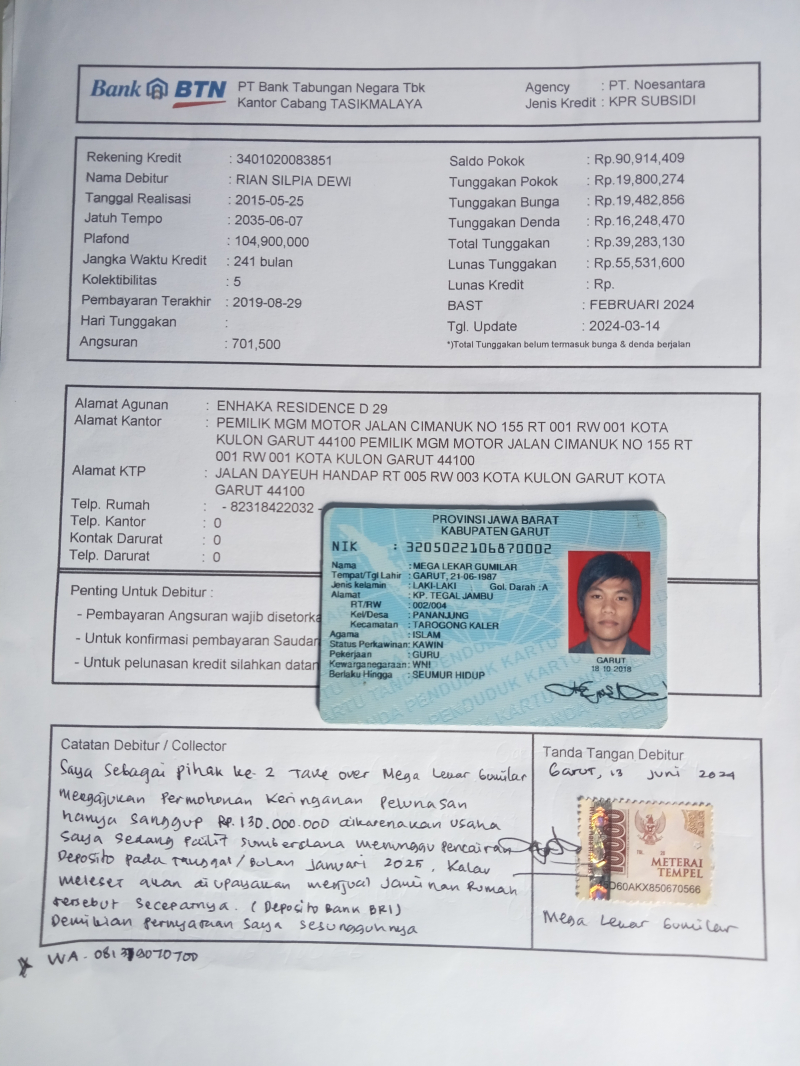 Bank BTN PT Bank Tabungan Negara Tbk
Kantor Cabang TASIKMALAYA
Agency : PT. Noesantara
Jenis Kredit : KPR SUBSIDI
Rekening Kredit : 3401020083851
Nama Debitur : RIAN SILPIA DEWI
Tanggal Realisasi : 2015-05-25
Jatuh Tempo : 2035-06-07
Plafond : 104,900,000
Jangka Waktu Kredit : 241 bulan
Kolektibilitas : 5
Pembayaran Terakhir : 2019-08-29
Hari Tunggakan :
Angsuran : 701,500
Saldo Pokok : Rp.90,914,409
Tunggakan Pokok : Rp.19,800,274
Tunggakan Bunga : Rp.19,482,856
Tunggakan Denda : Rp.16,248,470
Total Tunggakan : Rp.39,283,130
Lunas Tunggakan : Rp.55,531,600
Lunas Kredit : Rp.
BAST : FEBRUARI 2024
Tgl. Update : 2024-03-14
*)Total Tunggakan belum termasuk bunga & denda berjalan
Alamat Agunan : ENHAKA RESIDENCE D 29
Alamat Kantor : PEMILIK MGM MOTOR JALAN CIMANUK NO 155 RT 001 RW 001 KOTA
KULON GARUT 44100 PEMILIK MGM MOTOR JALAN CIMANUK NO 155 RT
001 RW 001 KOTA KULON GARUT 44100
Alamat KTP : JALAN DAYEUH HANDAP RT 005 RW 003 KOTA KULON GARUT KOTA
GARUT 44100
Telp. Rumah : - 82318422032 -
Telp. Kantor : 0
Kontak Darurat : 0
Telp. Darurat : 0
Penting Untuk Debitur :
- Pembayaran Angsuran wajib disetorka
- Untuk konfirmasi pembayaran Saudar
- Untuk pelunasan kredit silahkan datan
PROVINSI JAWA BARAT
KABUPATEN GARUT
NIK : 3205022106870002
Nama : MEGA LEKAR GUMILAR
Tempat/Tgl Lahir : GARUT, 21-06-1987
Jenis kelamin : LAKI-LAKI Gol. Darah : A
Alamat : KP. TEGAL JAMBU
RT/RW : 002/004
Kel/Desa : PANANJUNG
Kecamatan : TAROGONG KALER
Agama : ISLAM
Status Perkawinan: KAWIN
Pekerjaan : GURU
Kewarganegaraan: WNI
Berlaku Hingga : SEUMUR HIDUP
GARUT
18-10-2018
Catatan Debitur / Collector
Saya sebagai pihak ke-2 Take over Mega Lekar Gumilar
mengajukan permohonan keringanan pelunasan
hanya sanggup Rp. 130.000.000 dikarenakan usaha
saya sedang pailit sumberdana menunggu pencairan
Deposito pada tanggal/bulan Januari 2025, Kalau
meleset akan diupayakan menjual jaminan Rumah
tersebut secepatnya. (Deposito Bank BRI)
Demikian pernyataan saya sesungguhnya
Tanda Tangan Debitur
Garut, 13 Juni 2024
10000
METERAI
TEMPEL
D60AKX850670566
Mega Lekar Gumilar
WA. 08139070700